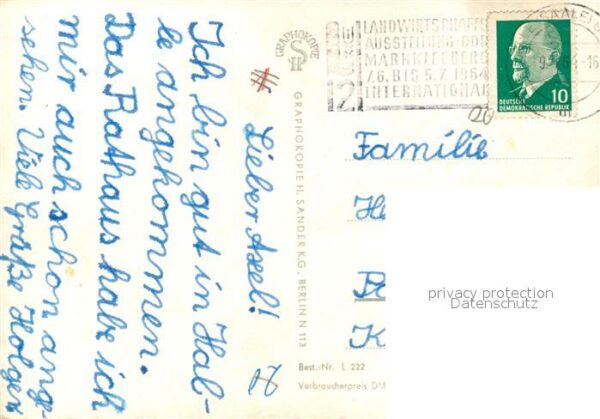 Lieber Axel!
Ich bin gut in Hal-
le angekommen.
Das Rathaus habe ich
mir auch schon ang
sehen. Viele Grüße Holger
GRAPHOKOPIE
GRAPHOKOPIE H. SANDER K.G., BERLIN N 113
LANDWIRTSCHAFTS
AUSSTELLUNG DDR
MARKKLEEBERG
7.6. BIS 5.7.1964
INTERNATIONAL
10
DEUTSCHE
DEMOKRATISCHE REPUBLIK
Familie
privacy protection
Datenschutz
Best.-Nr. L 222
Verbraucherpreis DM